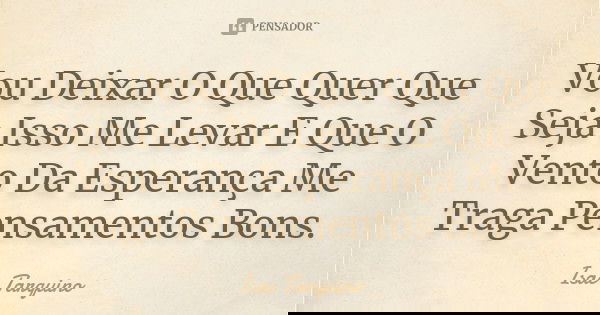 PENSADOR
Vou Deixar O Que Quer Que
Seja Isso Me Levar E Que O
Vento Da Esperança Me
Traga Pensamentos Bons.
Tarquino